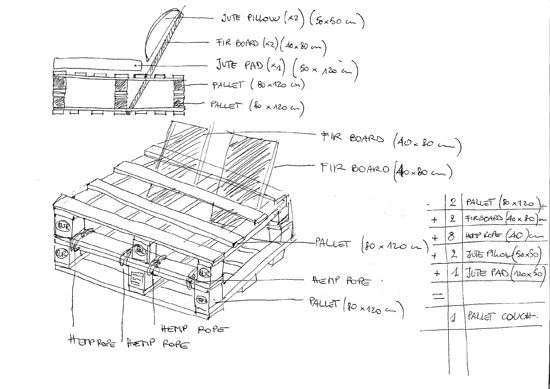 JUTE PILLOW (x2) (50x50 cm)
FIR BOARD (x2) (40x80 cm)
JUTE PAD (x1) (50 x 120 cm)
PALLET (80x120 cm)
PALLET (80x120 cm)
FIR BOARD (40x80 cm)
FIIR BOARD (40x80 cm)
PALLET (80x120 cm)
HEMP ROPE
PALLET (80x120 cm)
HEMP ROPE
HEMP ROPE
HEMP ROPE
- 2 PALLET (80x120)
+ 2 FIRBOARD (40x80) cm
+ 8 HEMP ROPE (40) cm
+ 2 JUTE PILLOW (50x50)
+ 1 JUTE PAD (120x50)
=
1 PALLET COUCH.